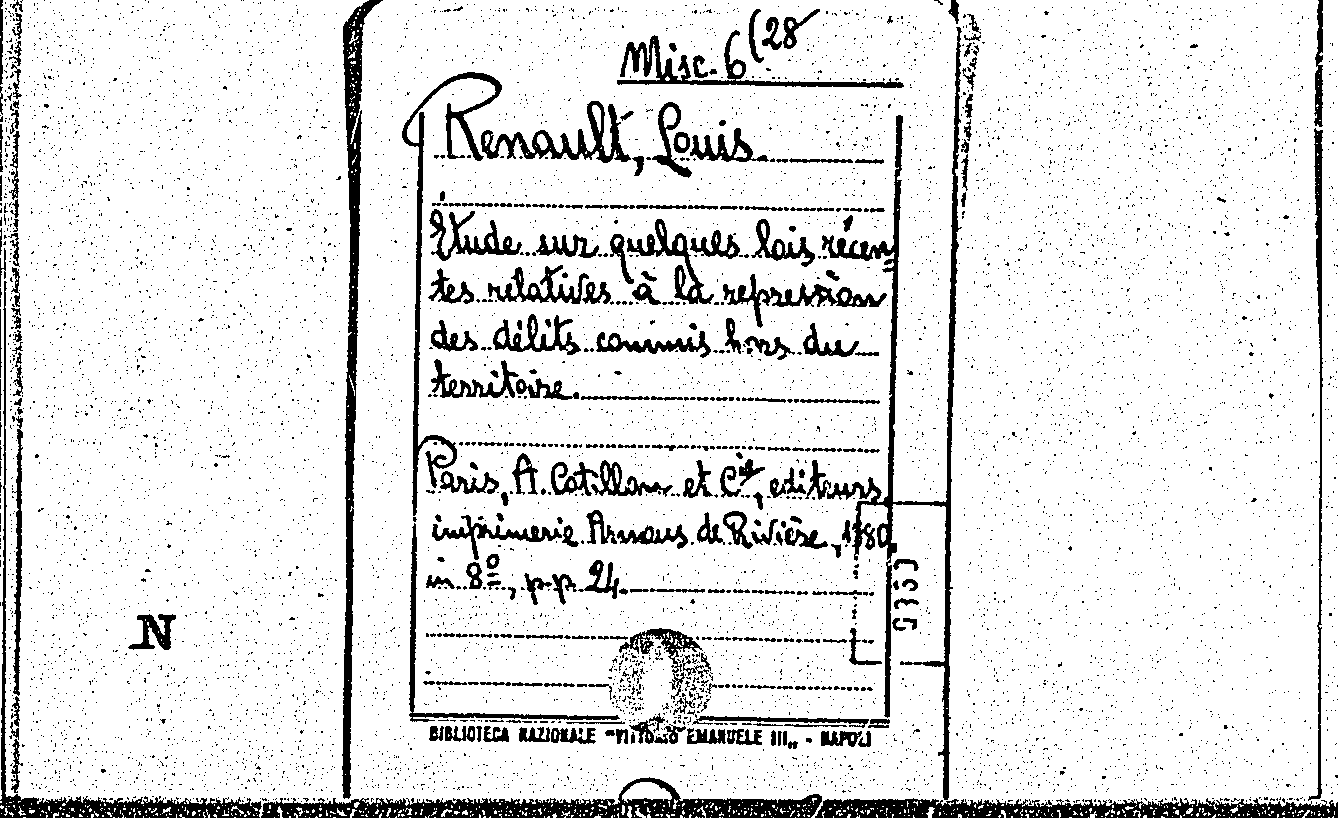 Misc. 6(28
Renault, Louis.
Étude sur quelques lois récen=
tes relatives à la repression
des délits commis hors du
territoire.
Paris, A. Cotillon et Cie, editeurs,
imprimerie Arnous de Rivière, 1880,
in 8º, p.p. 24.
N
BIBLIOTECA NAZIONALE "VITTORIO EMANUELE III„ - NAPOLI